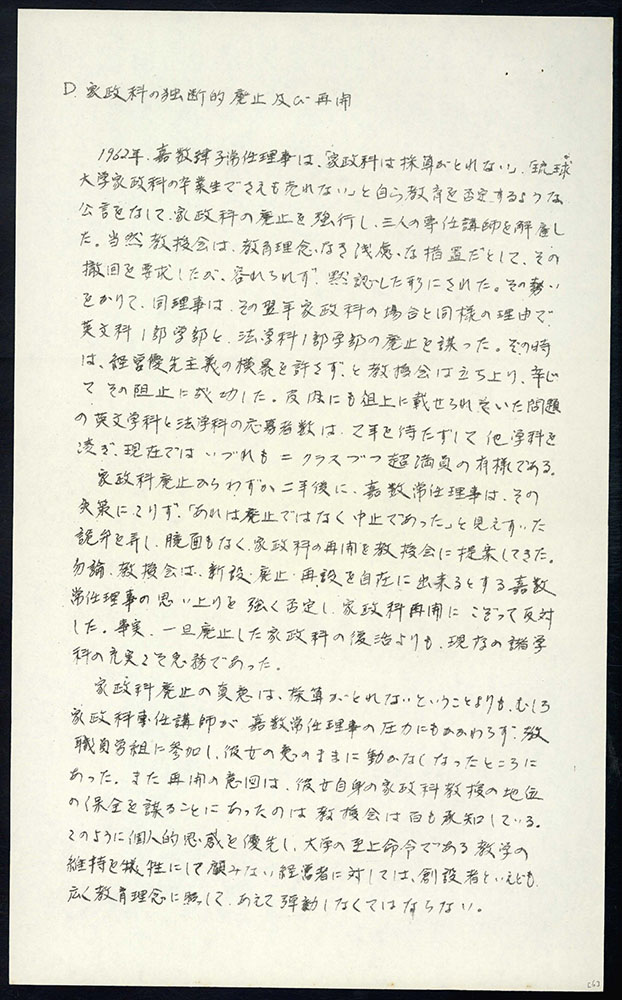 D. 家政科の独断的廃止及び再開
1962年、嘉数津子常任理事は、「家政科は採算がとれない」、「琉球
大学家政科の卒業生でさえも売れない」と自ら教育を否定するような
公言をなして、家政科の廃止を強行し、三人の専任講師を解雇し
た。当然教授会は、教育理念なき浅慮な措置だとして、その
撤回を要求したが、容れられず、黙認した形にされた。その勢い
をかりて、同理事は、その翌年家政科の場合と同様の理由で
英文科1部学部と、法学科1部学部の廃止を謀った。その時
は、経営優先主義の横暴を許さず、と教授会は立ち上り、辛じ
てその阻止に成功した。皮肉にも俎上に載せられていた問題
の英文学科と法学科の応募者数は、て年を待たずして他学科を
凌ぎ、現在では いづれも二クラスづつ超満員の有様である。
家政科廃止からわずか二年後に、嘉数常任理事は、その
失策にこりず、「あれは廃止ではなく中止であった」と見えすいた
詭弁を弄し、臆面もなく、家政科の再開を教授会に提案してきた。
勿論、教授会は、新設・廃止・再設を自在に出来るとする嘉数
常任理事の思い上りを強く否定し、家政科再開にこぞって反対
した。事実、一旦廃止した家政科の復活よりも、現存の諸学
科の充実こそ急務であった。
家政科廃止の真意は、採算がとれないということよりも、むしろ
家政科専任講師が嘉数常任理事の圧力にもかかわらず、教
職員労組に参加し、彼女の意のままに動かなくなったところに
あった。また再開の意図は、彼女自身の家政科教授の地位
の保全を謀ることにあったのは教授会は百も承知している。
このように個人的思惑を優先し、大学の至上命令である教学の
維持を犠牲にして顧みない経営者に対しては、創設者といえども、
広く教育理念に照して、あえて弾劾しなくてはならない。